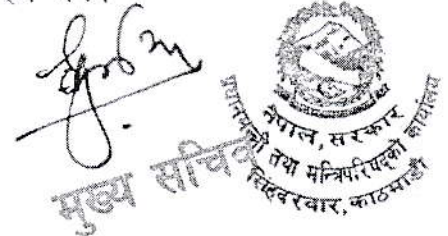 मुख्य सचिव
नेपाल सरकार
प्रधानमन्त्री तथा मन्त्रिपरिषद्को कार्यालय
सिंहदरबार, काठमाडौं